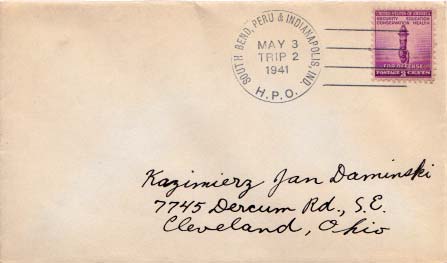 SOUTH BEND, PERU & INDIANAPOLIS, IND.
MAY 3
TRIP 2
1941
H.P.O.
UNITED STATES OF AMERICA
SECURITY EDUCATION
CONSERVATION HEALTH
FOR DEFENSE
POSTAGE 3 CENTS
Kazimierz Jan Daminski
7745 Dercum Rd., S.E.
Cleveland, Ohio